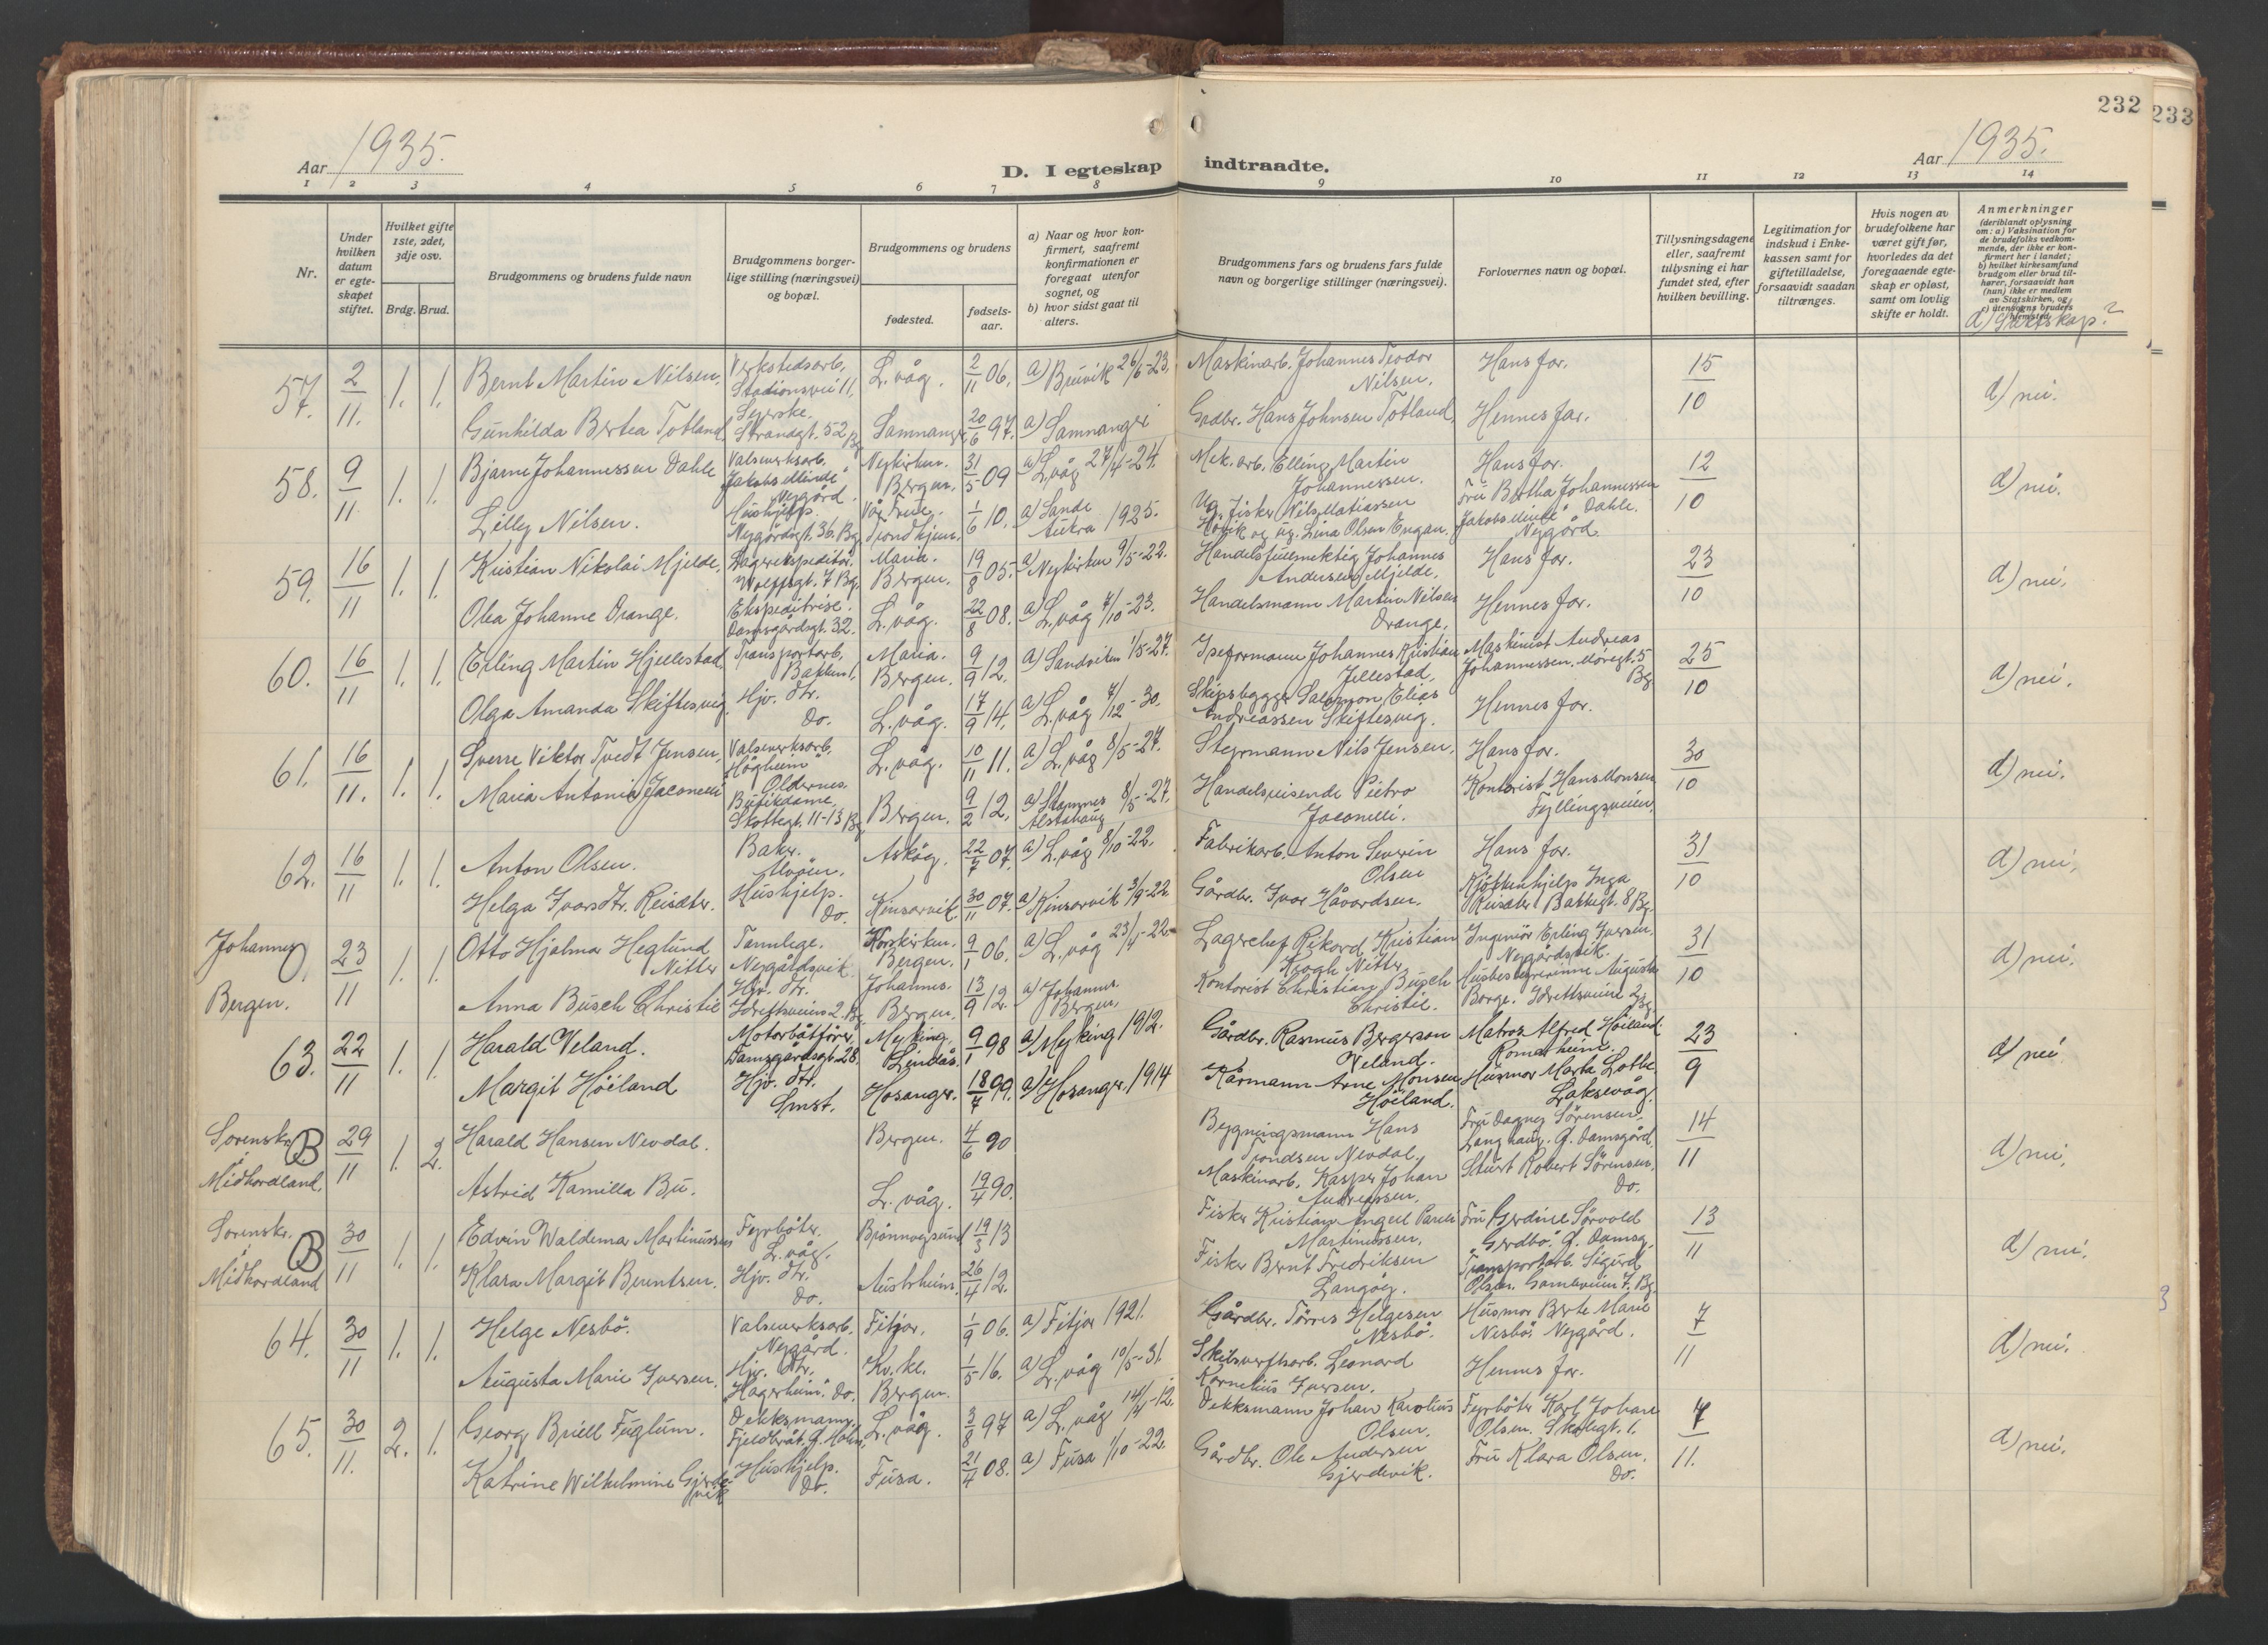 232
233
Aar 1935.
D. I egteskap
indtraadte.
Aar 1935.
1 2 3 4 5 6 7 8 9 10 11 12 13 14
Nr.
Under hvilken datum er egteskapet stiftet.
Hvilket gifte 1ste, 2det, 3dje osv.
Brdg. Brud.
Brudgommens og brudens fulde navn
Brudgommens borgerlige stilling (næringsvei) og bopæl.
Brudgommens og brudens
fødested.
fødselsaar.
a) Naar og hvor konfirmert, saafremt konfirmationen er foregaat utenfor sognet, og
b) hvor sidst gaat til alters.
Brudgommens fars og brudens fars fulde navn og borgerlige stillinger (næringsvei).
Forlovernes navn og bopæl.
Tillysningsdagene eller, saafremt tillysning ei har fundet sted, efter hvilken bevilling.
Legitimation for indskud i Enkekassen samt for giftetilladelse, forsaavidt saadan tiltrænges.
Hvis nogen av brudefolkene har været gift før, hvorledes da det foregaaende egteskap er opløst, samt om lovlig skifte er holdt.
Anmerkninger
(deriblandt oplysning om: a) Vaksination for de brudefolks vedkommende, der ikke er konfirmert her i landet; b) hvilket kirkesamfund brudgom eller brud tilhører, forsaavidt han (hun) ikke er medlem av Statskirken, og c) utensogns bruders hjemsted.
d) Slektskap?
57. 2/11. 1. 1. Bernt Martin Nilsen, Verkstedsarb, Stadionsvei 11, L. våg. 2/11 06. a) Bruvik 26/6-23. Maskinarb. Johannes Teodor Nilsen. Hans far. 15/10 d) nei.
Gunhilda Bertea Totland, Syerske. Strandgt. 52 Bg. Samnanger 20/6 97. a) Samnanger Gadbr. Hans Johnsen Totland, Hennes far.
58. 9/11 1. 1. Bjarne Johannessen Dahle Valseverksarb. "Jakobs Minde" Nygård. Nykirken. Bergen. 31/5 09 a) L. våg 27/4-24. Mek. arb. Elling Martin Johannessen. Hans far. 12/10 d) nei.
Lilly Nilsen. Hushjelp. Nygårdsgt. 36. Bg. Vår Frue. Trondhjem. 1/6 10. a) Sande Aukra 1925. Ug. fisker Nils Matiassen Hovik og ug. Lina Olsen Engan. Fru Bertha Johannessen Dahle. "Jakobs Minde" Nygård.
59. 16/11 1. 1. Kristian Nikolai Mjelde, Lagerekspeditör, Wolffsgt. 7 Bg. Maria. Bergen. 19/8 05. a) Nykirken 9/5-22. Handelsfullmektig Johannes Andersen Mjelde, Hans far. 23/10 d) nei.
Olea Johanne Drange. Ekspeditrise. Damsgårdsgt. 32. L. våg. 22/8 08. a) L. våg 7/10-23. Handelsmann Martin Nilsen Drange, Hennes far.
60. 16/11 1. 1. Erling Martin Hjellestad, Transportarb, Bakken 1, Maria. Bergen. 9/9 12. a) Sandviken 1/5-27. Johannes Kristian Jellestad, Maskinist Andreas Johannessen. Møregt. 5 Bg 25/10 d) nei.
Olga Amanda Skiftesvig. Hjv. dtr. Do. L. våg. 17/9 14. a) L. våg 7/12-30. Skipsbygger Salomon Elias Andreassen Skiftesvig. Hennes far.
61. 16/11. 1. 1. Sverre Viktor Tvedt Jensen, Valseverksarb. "Högheim" Oldernes. L. våg. 10/11 11. a) L. våg 8/5-27. Styrmann Nils Jensen. Hans far. 30/10 d) nei.
Maria Antonia Jaconelli Butikdame. Skottegt. 11-13 Bg. Bergen. 9/2 12. a) Stamnes Alstahaug 8/5-27. Handelsreisende Pietro Jaconelli. Kontorist Hans Monsen Fyllingsveien.
62. 16/11 1. 1. Anton Olsen. Baker. Alvøen. Askøy. 22/7 07. a) L. våg 8/10-22. Fabrikarb. Anton Severin Olsen Hans far. 31/10 d) nei.
Helga Ivarsdtr. Reisæter. Hushjelp. Do. Kinsarvik. 30/11 07. a) Kinsarvik 3/9-22. Gårdbr. Ivar Håvardsen. Kjökkenhjelp Inga Reisæter Bakkegt. 8 Bg.
Johannes, Bergen. 23/11 1. 1. Otto Hjalmar Heglund Nitter Tannlege. Nygårdsvik. Korskirken. Bergen. 9/1 06. a) L. våg 23/4-22. Lagerchef Rikard Kristian Krogh Nitter Ingeniör Erling Iversen, Nygårdsvik. 31/10 d) nei.
Anna Busch Christie Hjv. dtr. Idrettsveien 2. Bg. Johannes. Bergen. 13/9 12. a) Johannes. Bergen. Kontorist Christian Busch Christie. Husbestyrerinne Augusta Borge. Idrettsveien 2 Bg.
63. 22/11 1. 1. Harald Veland. Motorbåtförer, Damsgårdsgt. 28. Myking. Lindås. 9/1 98 a) Myking 1912. Gårdbr. Rasmus Bergerson Veland. Matros Alfred Höiland. Romarheim. 23/9 d) nei
Margit Höiland Hjv. dtr. Smst. Hosanger. 18/7 99. a) Hosanger. 1914 Kårmann Arne Monsen Höiland. Husmor Marta Lothe. Laksevåg.
Sorenskr. B i Midhordland. 29/11 1. 2. Harald Hansen Nevdal. Bergen. 4/6 90 Bygningsmann Hans Nevdal, Fru Dagny Sörensen, Langhaug. G. Damsgård. 14/11 d) nei.
Astrid Kamilla Bu. L. våg. 19/4 90. Maskinarb. Kasper Johan Andreassen. Stuert Robert Sörensen. Do.
Sorenskr. B i Midhordland 30/11 1. 1. Edvin Waldemar Martinussen Fyrböter. L. våg. Brönnøysund 19/3 13 Fisker Kristian Angell Pareli Martinussen, Fru Gerdine Sörvold "Gerdbo". G. Damsg. 13/11 d) nei.
Klara Margit Berntsen. Hjv. dtr. Do. Austrheim. 26/4 12. Fisker Bernt Fredriksen Langøy. Transportarb. Sigurd Olsen. Gamleveien 7. Bg.
64. 30/11 1. 1. Helge Nesbö. Valseverksarb. Nygård. Fitjar. 1/9 06. a) Fitjar 1921. Gårdbr. Törres Helgesen Nesbö. Husmor Berte Marie Nesbö. Nygård. 7/11 d) nei.
Augusta Marie Iversen. Hjv. dtr. "Hagerheim". Do. Kv. kl. Bergen. 1/5 16. a) L. våg 10/5-31. Skibsverftsarb. Leonard Kornelius Iversen. Hennes far.
65. 30/11. 2. 1. Georg Bruell Fuglum. Dekksmann. Fjeldbråt. G. Holm. L. våg. 3/8 97 a) L. våg 14/4-12. Dekksmann Johan Karolius Olsen. Fyrböter Karl Johan Olsen. Skolegt. 1. 7/11. d) nei.
Katrine Wilhelmine Gjerdevik Hushjelp. Do. Fusa. 21/4 08. a) Fusa 1/10-22. Gårdbr. Ole Andersen Gjerdevik. Fru Klara Olsen. Do.